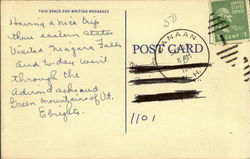 THIS SPACE FOR WRITING MESSAGES
Having a nice trip
thru eastern states
Visited Niagara Falls
And to-day went
through the
Adirondacks and
Green mountains of Vt.
Ebrights.
50
POST CARD
CANAAN
N.H.
1101
1 CENT 1